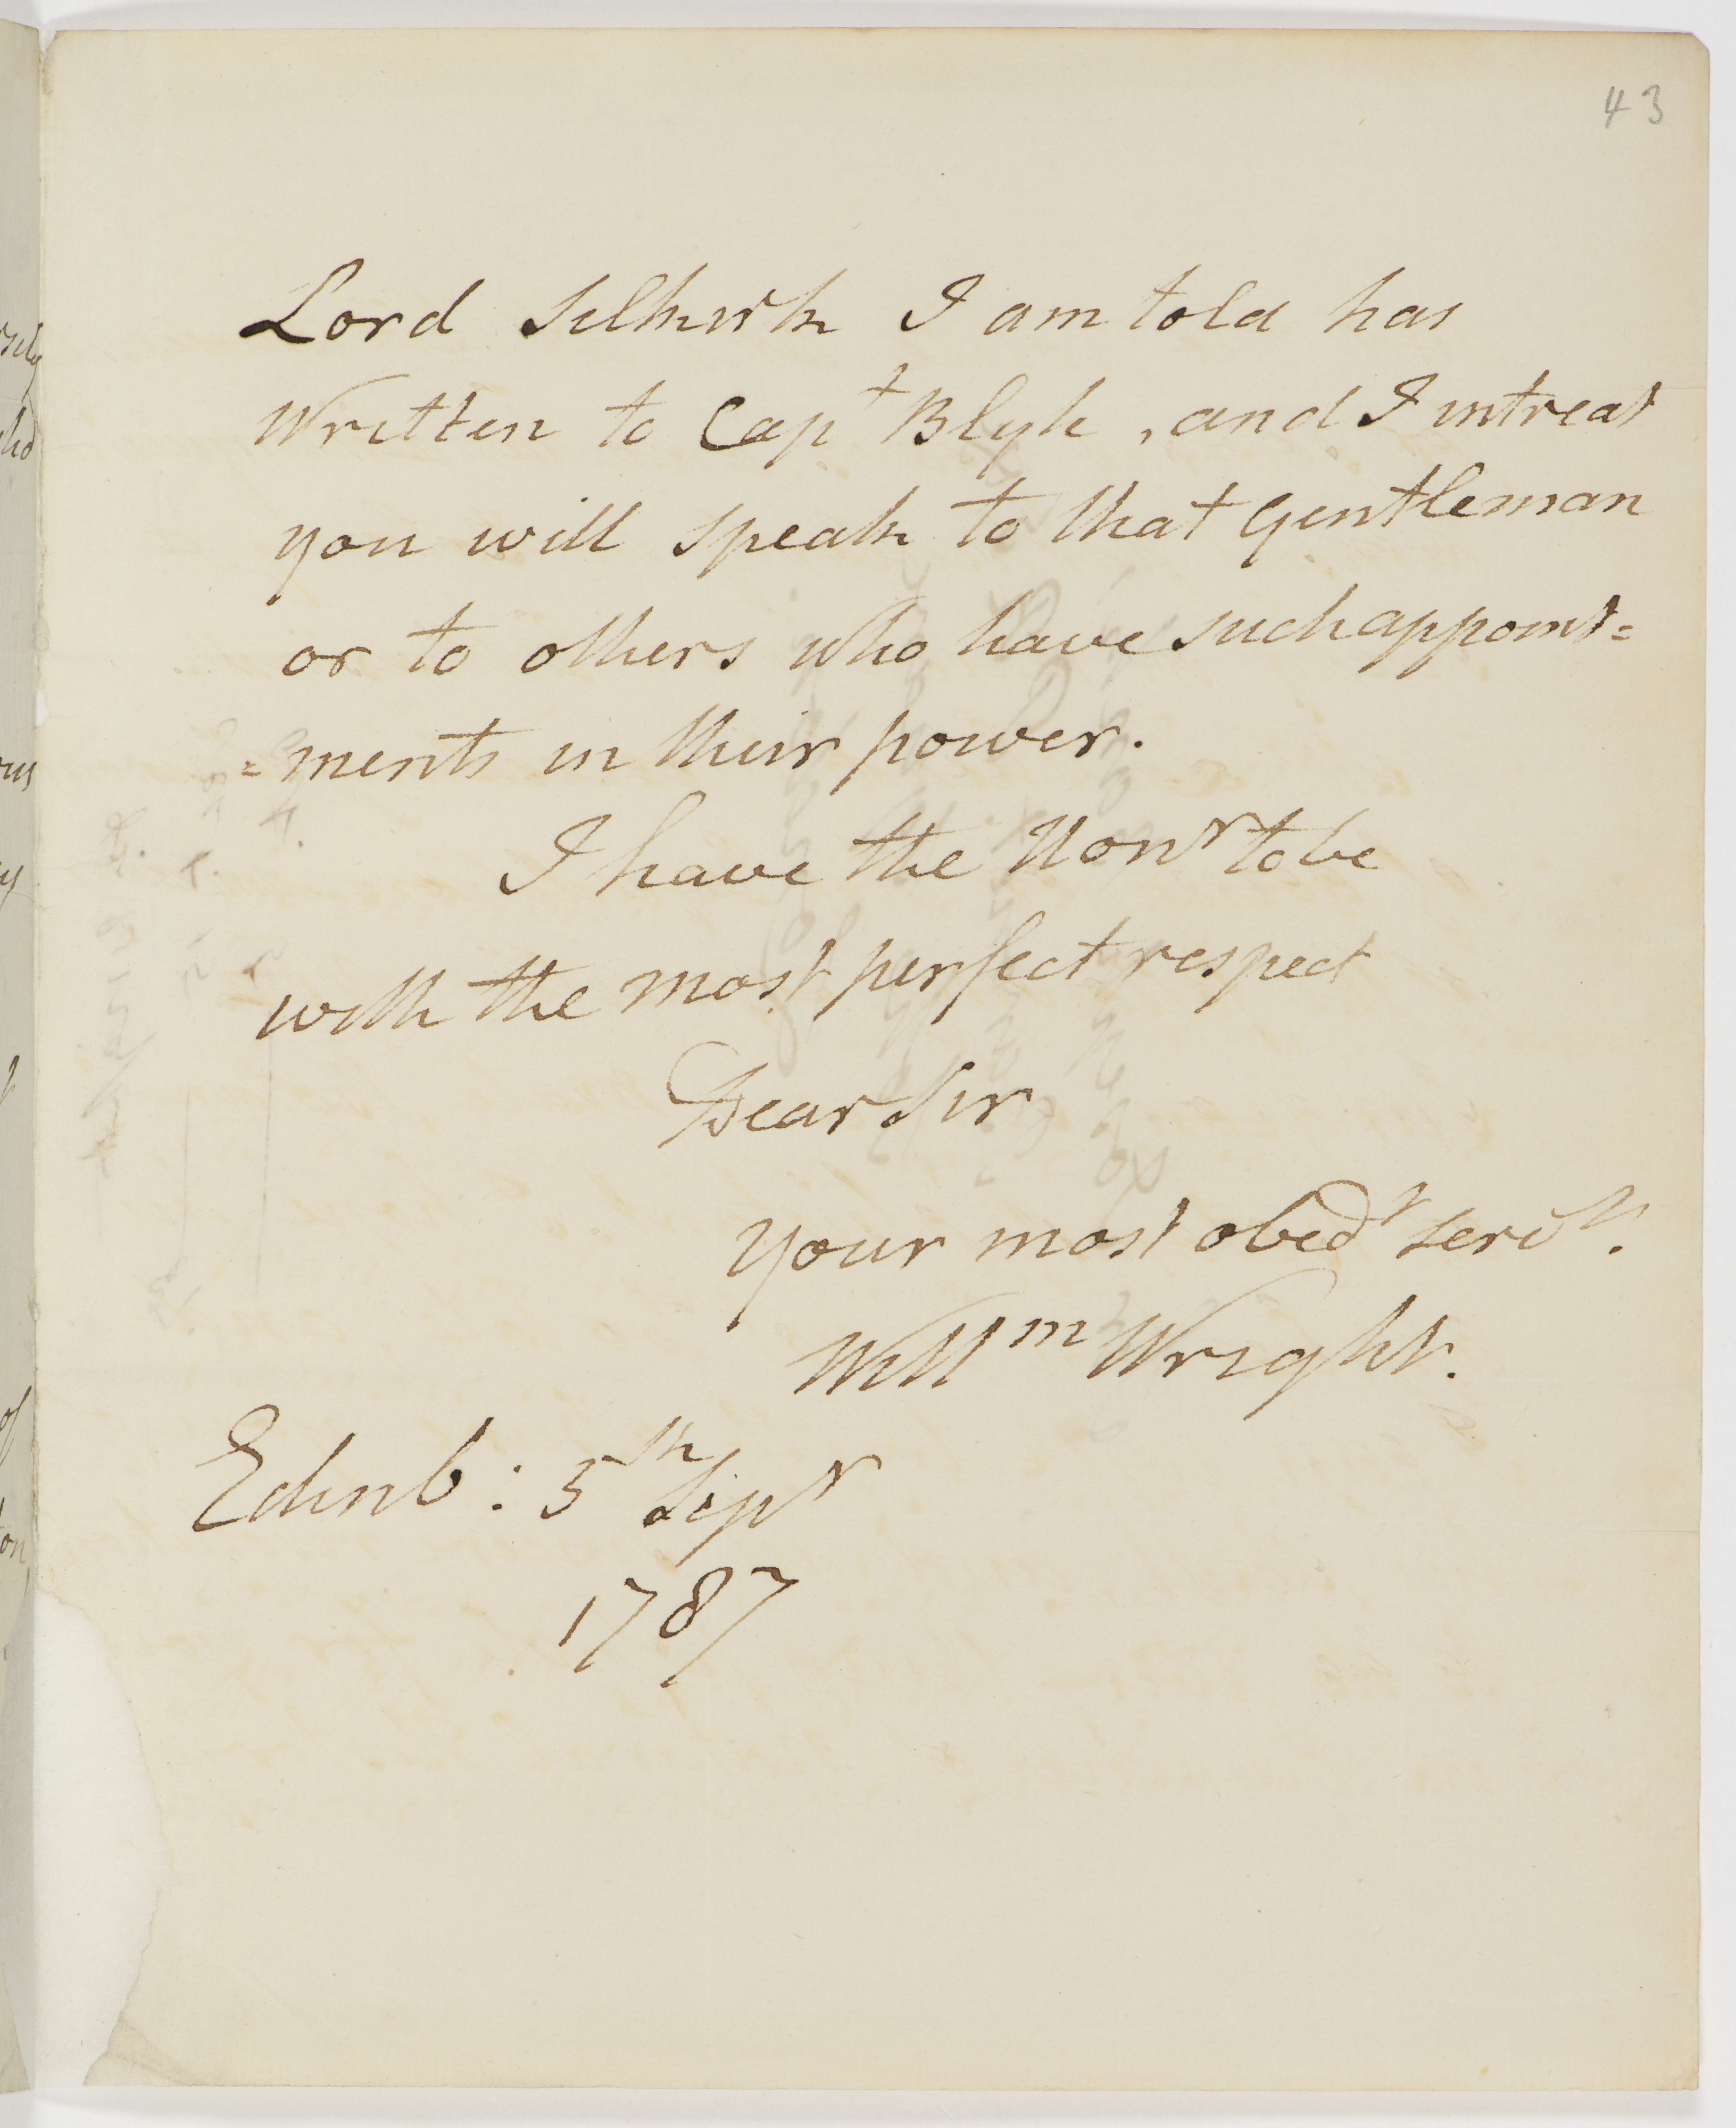 43
Lord Selkirk I am told has
Written to Capt Blyh, and I intreat
you will speak to that Gentleman
or to others who have such appoint=
=ments in their power.
I have the Honr to be
with the most perfect respect
Dear Sir
your most obedt servt.
Willm Wright.
Edinb: 5th Sepr
1787